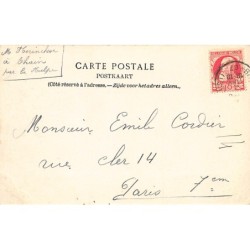 à Thuin
par la Hulpe
CARTE POSTALE
POSTKAART
(Côté réservé à l'adresse. — Zijde voor het adres alleen.)
Monsieur Emile Cordier
rue cler 14
Paris 7em